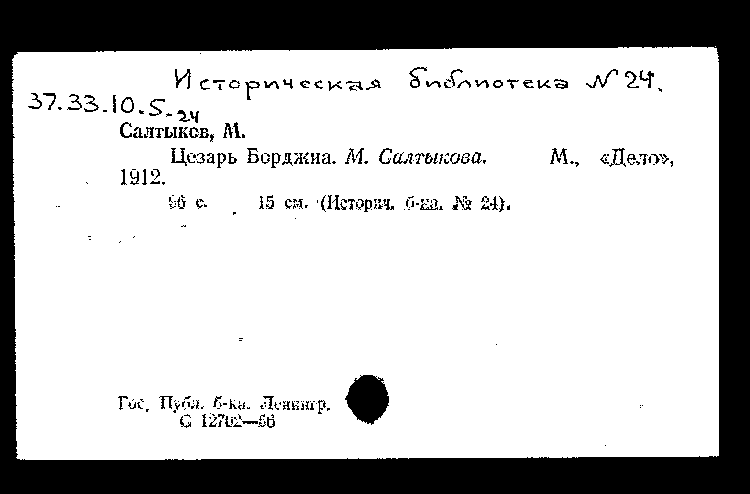 Историческая библиотека N 24.
37.33.10.5-24
Салтыков, М.
Цезарь Борджиа. М. Салтыкова. М., «Дело»,
1912.
96 с. 15 см. (Историч. б-ка. № 24).
Гос. Публ. б-ка. Ленингр.
С 12702—56